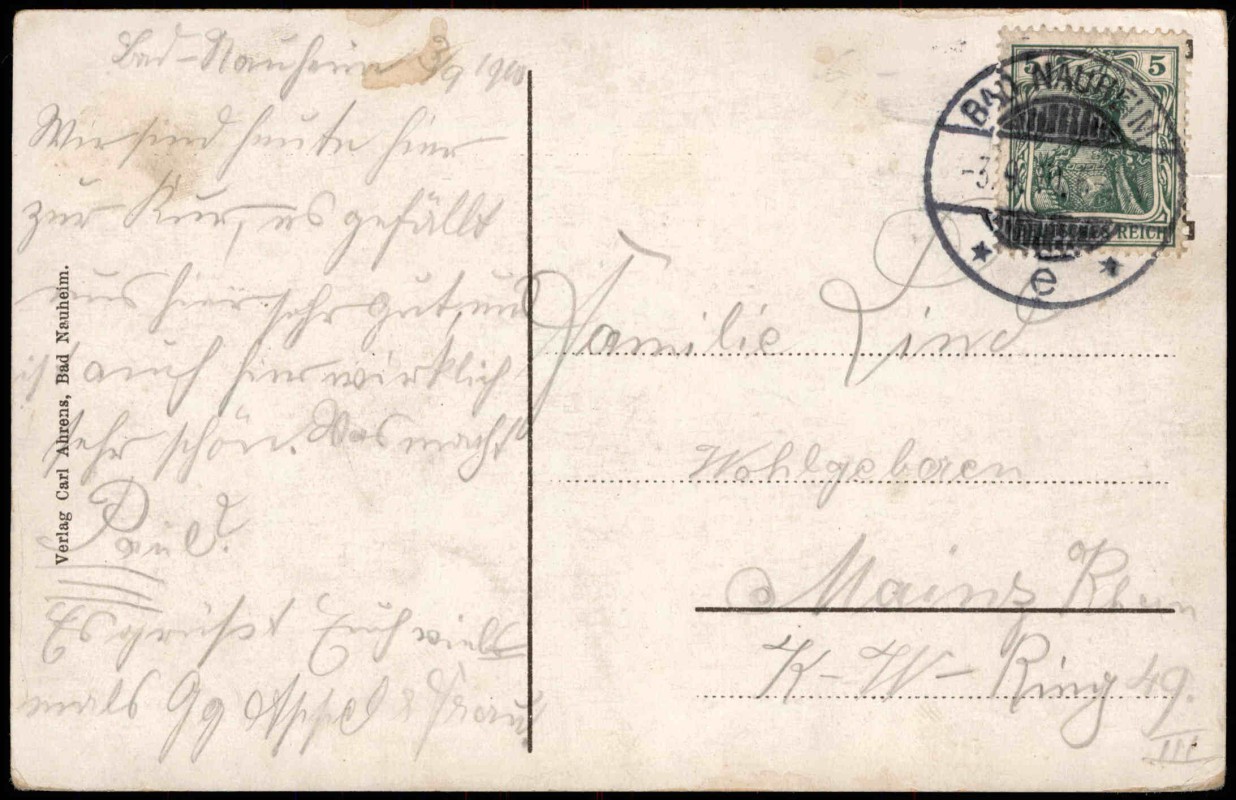 Bad-Nauheim 3/9 19
Wir sind heute hier
zur Kur, es gefällt
uns hier sehr gut, und
ist auch hier wirklich
sehr schön. Was macht
Paul?
Es grüßt Euch viel-
mals Gg Appel & Frau
Verlag Carl Ahrens, Bad Nauheim.
5 5
DEUTSCHES REICH
BAD NAUHEIM
-3.9.
* e *
Familie Lind
Wohlgeboren
Mainz Rhein
K-W-Ring 49.
III